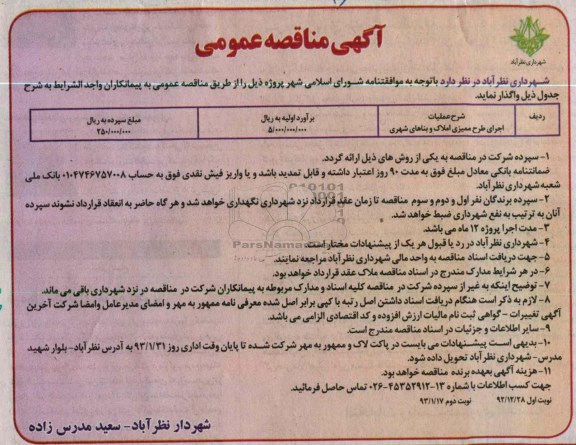 شهرداری نظرآباد
آگهی مناقصه عمومی
شهرداری نظرآباد در نظر دارد باتوجه به موافقتنامه شورای اسلامی شهر پروژه ذیل را از طریق مناقصه عمومی به پیمانکاران واجد الشرایط به شرح
جدول ذیل واگذار نماید.
ردیف شرح عملیات برآورد اولیه به ریال مبلغ سپرده به ریال
۱ اجرای طرح ممیزی املاک و بناهای شهری ۵/۰۰۰/۰۰۰/۰۰۰ ۲۵۰/۰۰۰/۰۰۰
۱- سپرده شرکت در مناقصه به یکی از روش های ذیل ارائه گردد.
ضمانتنامه بانکی معادل مبلغ فوق به مدت ۹۰ روز اعتبار داشته و قابل تمدید باشد و یا واریز فیش نقدی فوق به حساب ۰۱۰۴۷۴۶۷۵۷۰۰۸ بانک ملی
شعبه شهرداری نظرآباد.
۲- سپرده برندگان نفر اول و دوم و سوم مناقصه تا زمان عقد قرارداد نزد شهرداری نگهداری خواهد شد و هر گاه حاضر به انعقاد قرارداد نشوند سپرده
آنان به ترتیب به نفع شهرداری ضبط خواهد شد.
۳- مدت اجرا پروژه ۱۲ ماه می باشد.
۴- شهرداری نظرآباد در رد یا قبول هر یک از پیشنهادات مختار است.
۵- جهت دریافت اسناد مناقصه به واحد مالی شهرداری نظرآباد مراجعه نمایند.
۶- در هر شرایط مدارک مندرج در اسناد مناقصه ملاک عقد قرارداد خواهد بود.
۷- توضیح اینکه به غیر از سپرده شرکت در مناقصه کلیه اسناد و مدارک مربوطه به پیمانکاران شرکت در مناقصه در نزد شهرداری باقی می ماند.
۸- لازم به ذکر است هنگام دریافت اسناد داشتن اصل رتبه با کپی برابر اصل شده معرفی نامه ممهور به مهر و امضای مدیرعامل وامضا شرکت آخرین
آگهی تغییرات - گواهی ثبت نام مالیات ارزش افزوده و کد اقتصادی الزامی می باشد.
۹- سایر اطلاعات و جزئیات در اسناد مناقصه مندرج است.
۱۰- بدیهی است پیشنهادات می بایست در پاکت لاک و ممهور به مهر شرکت شده تا پایان وقت اداری روز ۹۳/۱/۳۱ به آدرس نظرآباد- بلوار شهید
مدرس- شهرداری نظرآباد تحویل داده شود.
۱۱- هزینه آگهی بعهده برنده مناقصه خواهد بود.
جهت کسب اطلاعات با شماره ۱۳-۴۵۳۵۲۹۱۲-۰۲۶ تماس حاصل فرمائید.
نوبت اول ۹۲/۱۲/۲۸ نوبت دوم ۹۳/۱/۱۷
شهردار نظرآباد- سعید مدرس زاده